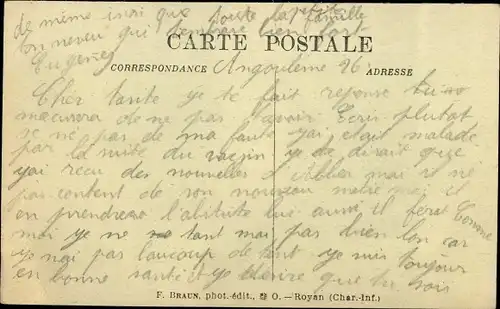 de même insi que toute la petite famille
ton neveu qui t'embrase bien fort
Eugene
CARTE POSTALE
CORRESPONDANCE Angoulème 26 ADRESSE
Cher tante je te fait reponse tu
macusera de ne pas t'avoir Ecris plutot
se né pas de ma faute j'ai était malade
par la suite du vaxin je te dirait que
j'ai recu des nouvelles d' mai il né
pas content de son nouveau métre mai il
en prendera l'abitute lui aussi il fera Comme
moi je ne tant mai pas bien lon car
je nai pas beaucoup de je mis toujour
en bonne santé et je désire que tu sois
F. BRAUN, phot.-édit., O. — Royan (Char.-Inf.)